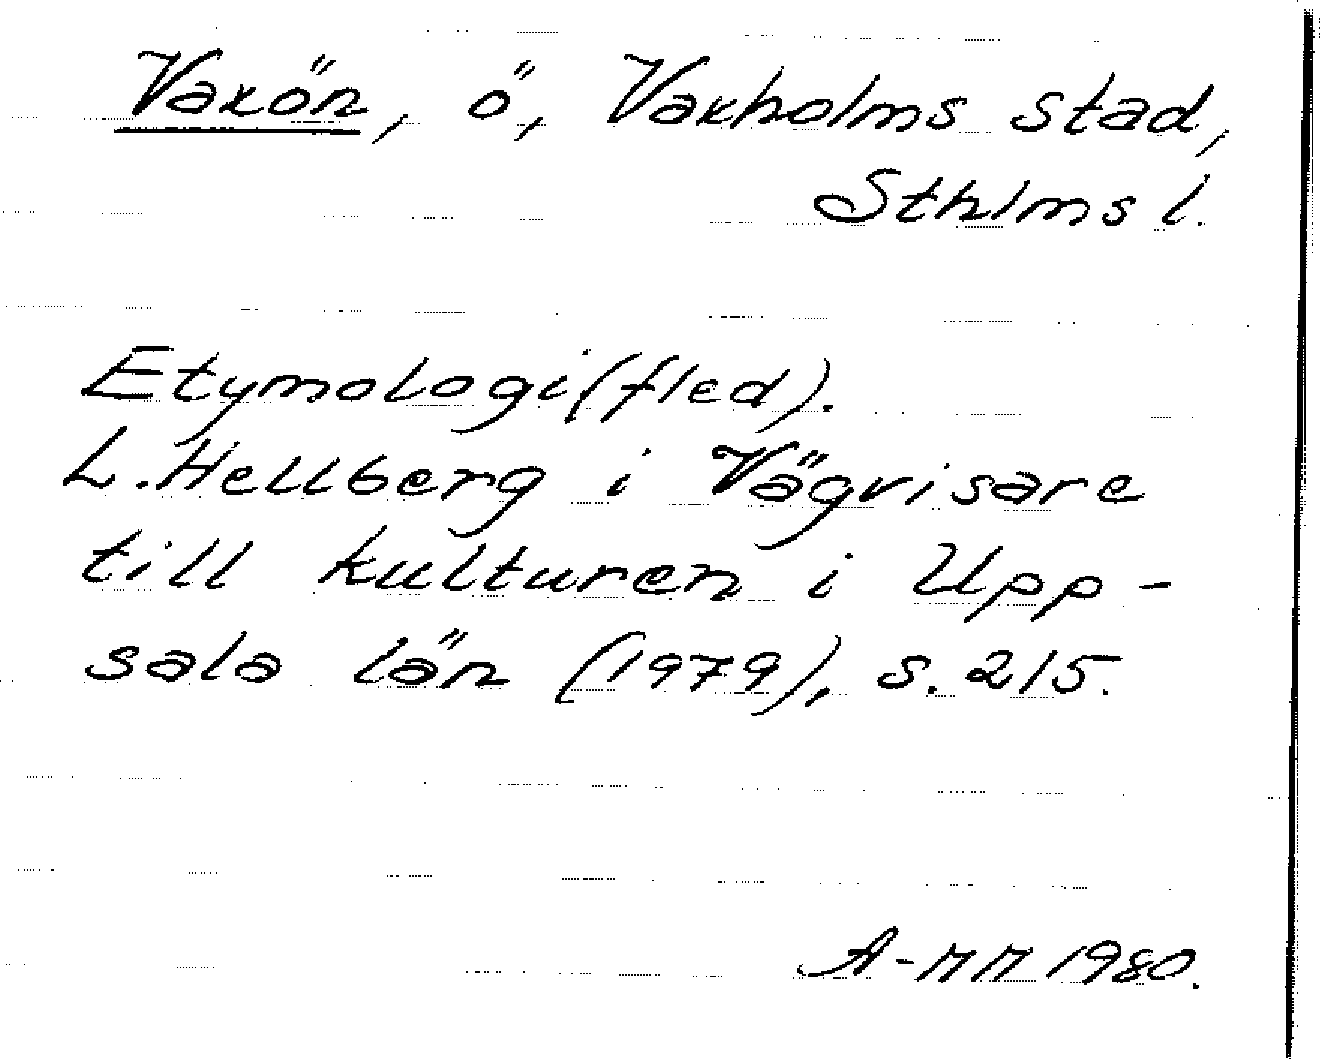 Vaxön, ö, Vaxholms stad,
Sthlms l.
Etymologi (fled).
L. Hellberg i Vägvisare
till kulturen i Upp-
sala län (1979), s. 215.
A-MM 1980.